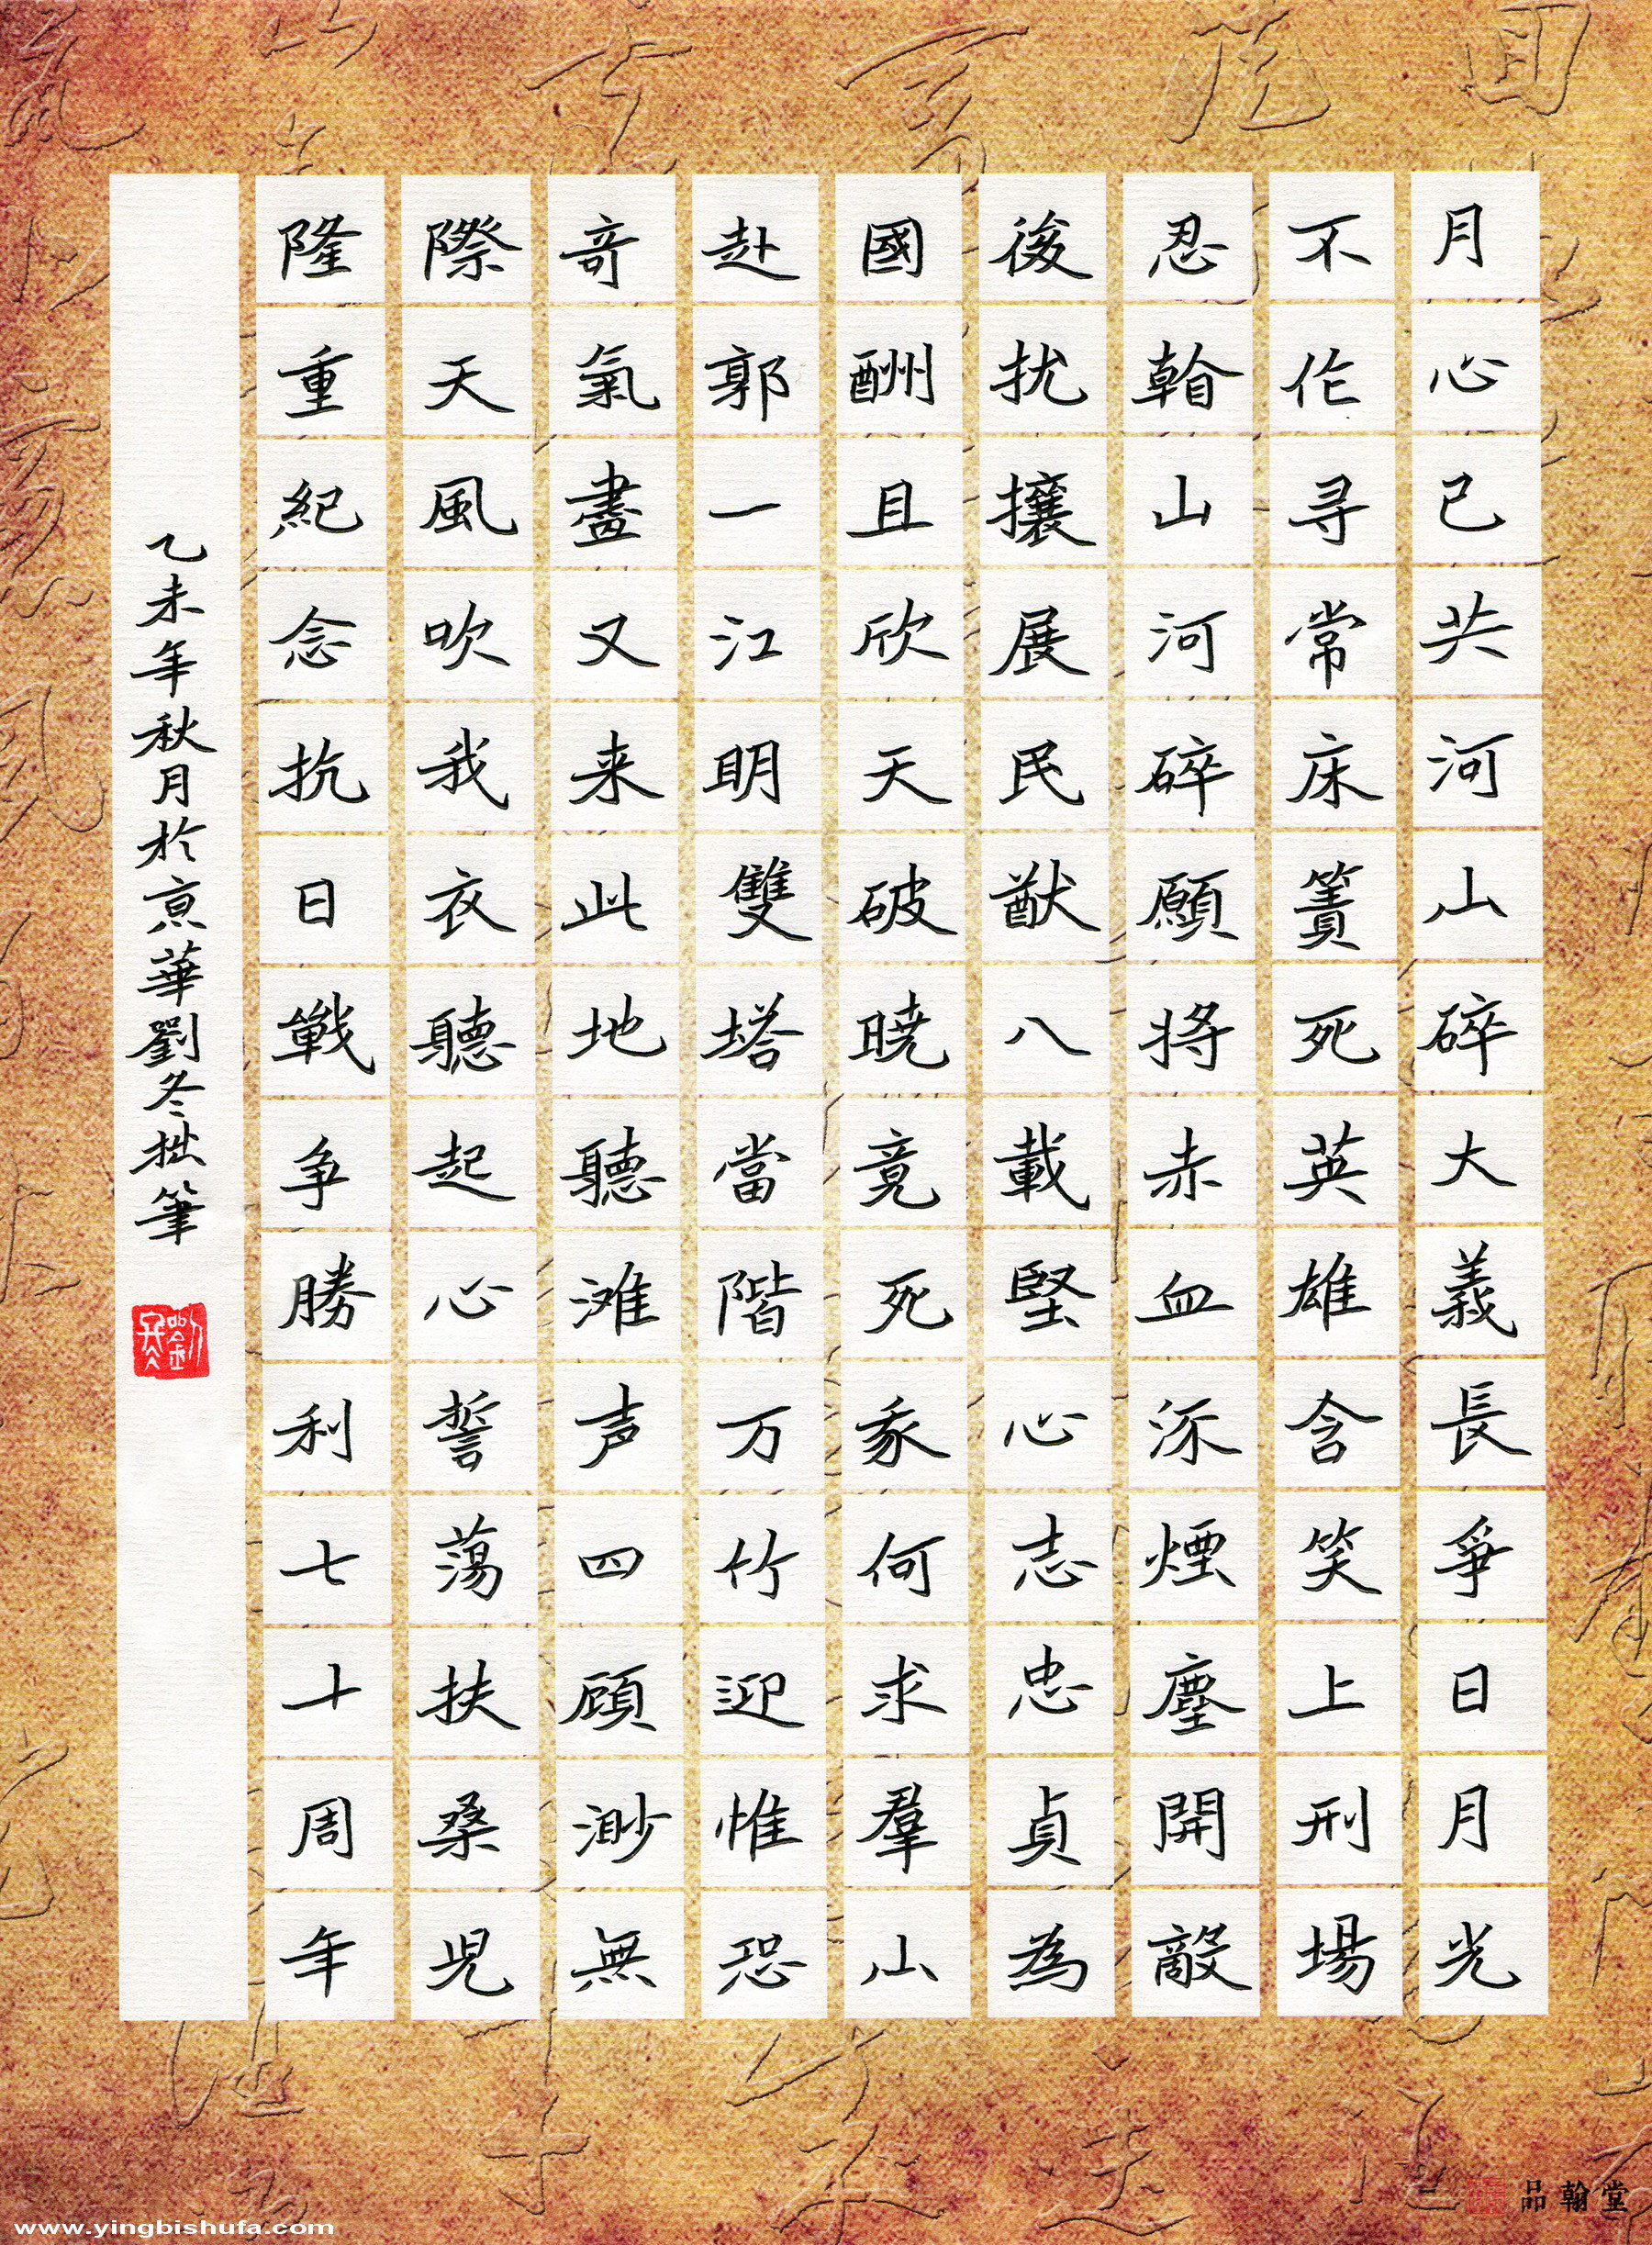 月心已共河山碎大義長爭日月光
不作寻常床簀死英雄含笑上刑場
忍看山河碎願将赤血流煙塵開敵
後扰攘展民猷八載堅心志忠貞為
國酬且欣天破曉竟死我何求羣山
赴郭一江明雙塔當階万竹迎惟恐
奇氣盡又来此地聽滩声四顾渺無
際天風吹我衣聽起心誓蕩扶桑児
隆重紀念抗日戰争勝利七十周年
乙未年秋月於京華劉冬拙筆
www.yingbishufa.com
品翰堂